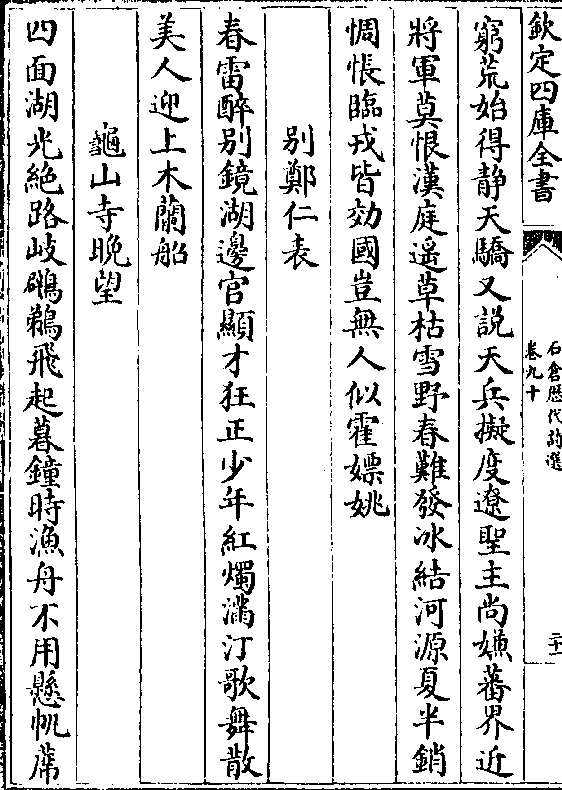 欽定四庫全書
石倉歴代詩選
卷九十
二十一
窮荒始得靜天驕又説天兵擬度遼聖主尚嫌蕃界近
將軍莫恨漢庭遥草枯雪野春難發冰結河源夏半銷
惆悵臨戎皆効國豈無人似霍嫖姚
别鄭仁表
春雷醉别鏡湖邊官顯才狂正少年紅燭滿汀歌舞散
美人迎上木蘭船
龜山寺晚望
四面湖光絶路岐鸊鵜飛起暮鐘時漁舟不用懸帆席